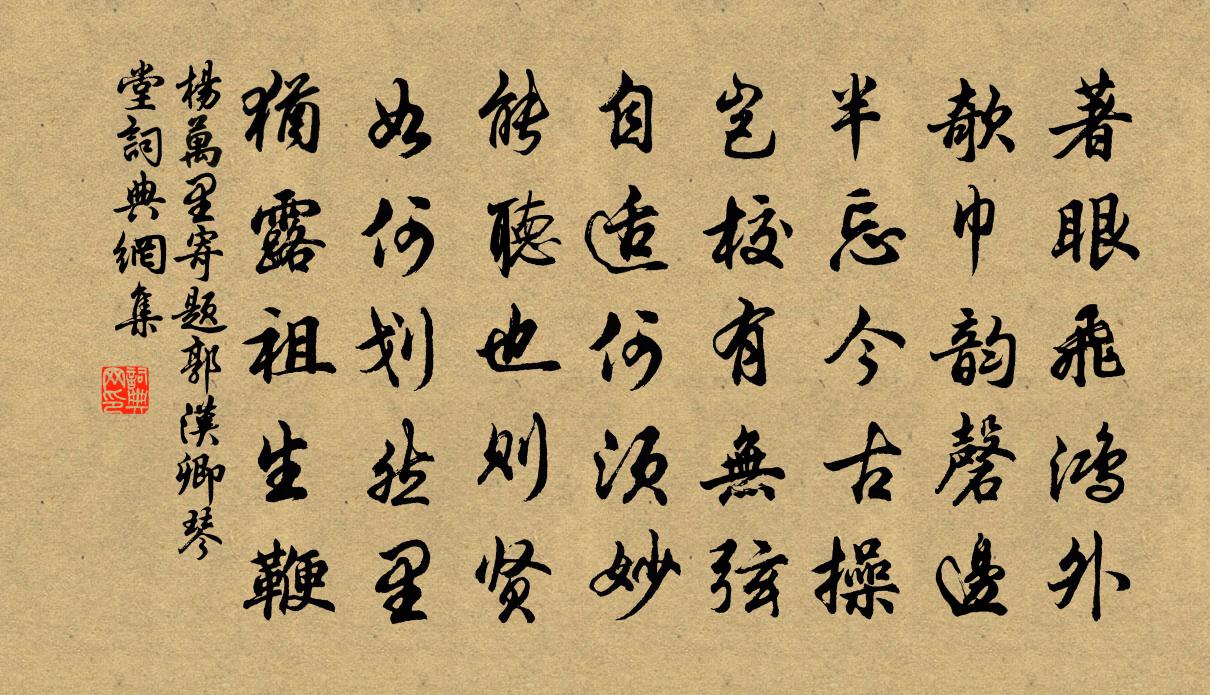 著眼飛鴻外
欹巾韵磬邊
半忘今古操
豈校有無弦
自适何須妙
能聽也則贤
如何划然里
猶露祖生鞭
楊萬里寄題郭漢卿琴
堂詞典網集
詞典网印